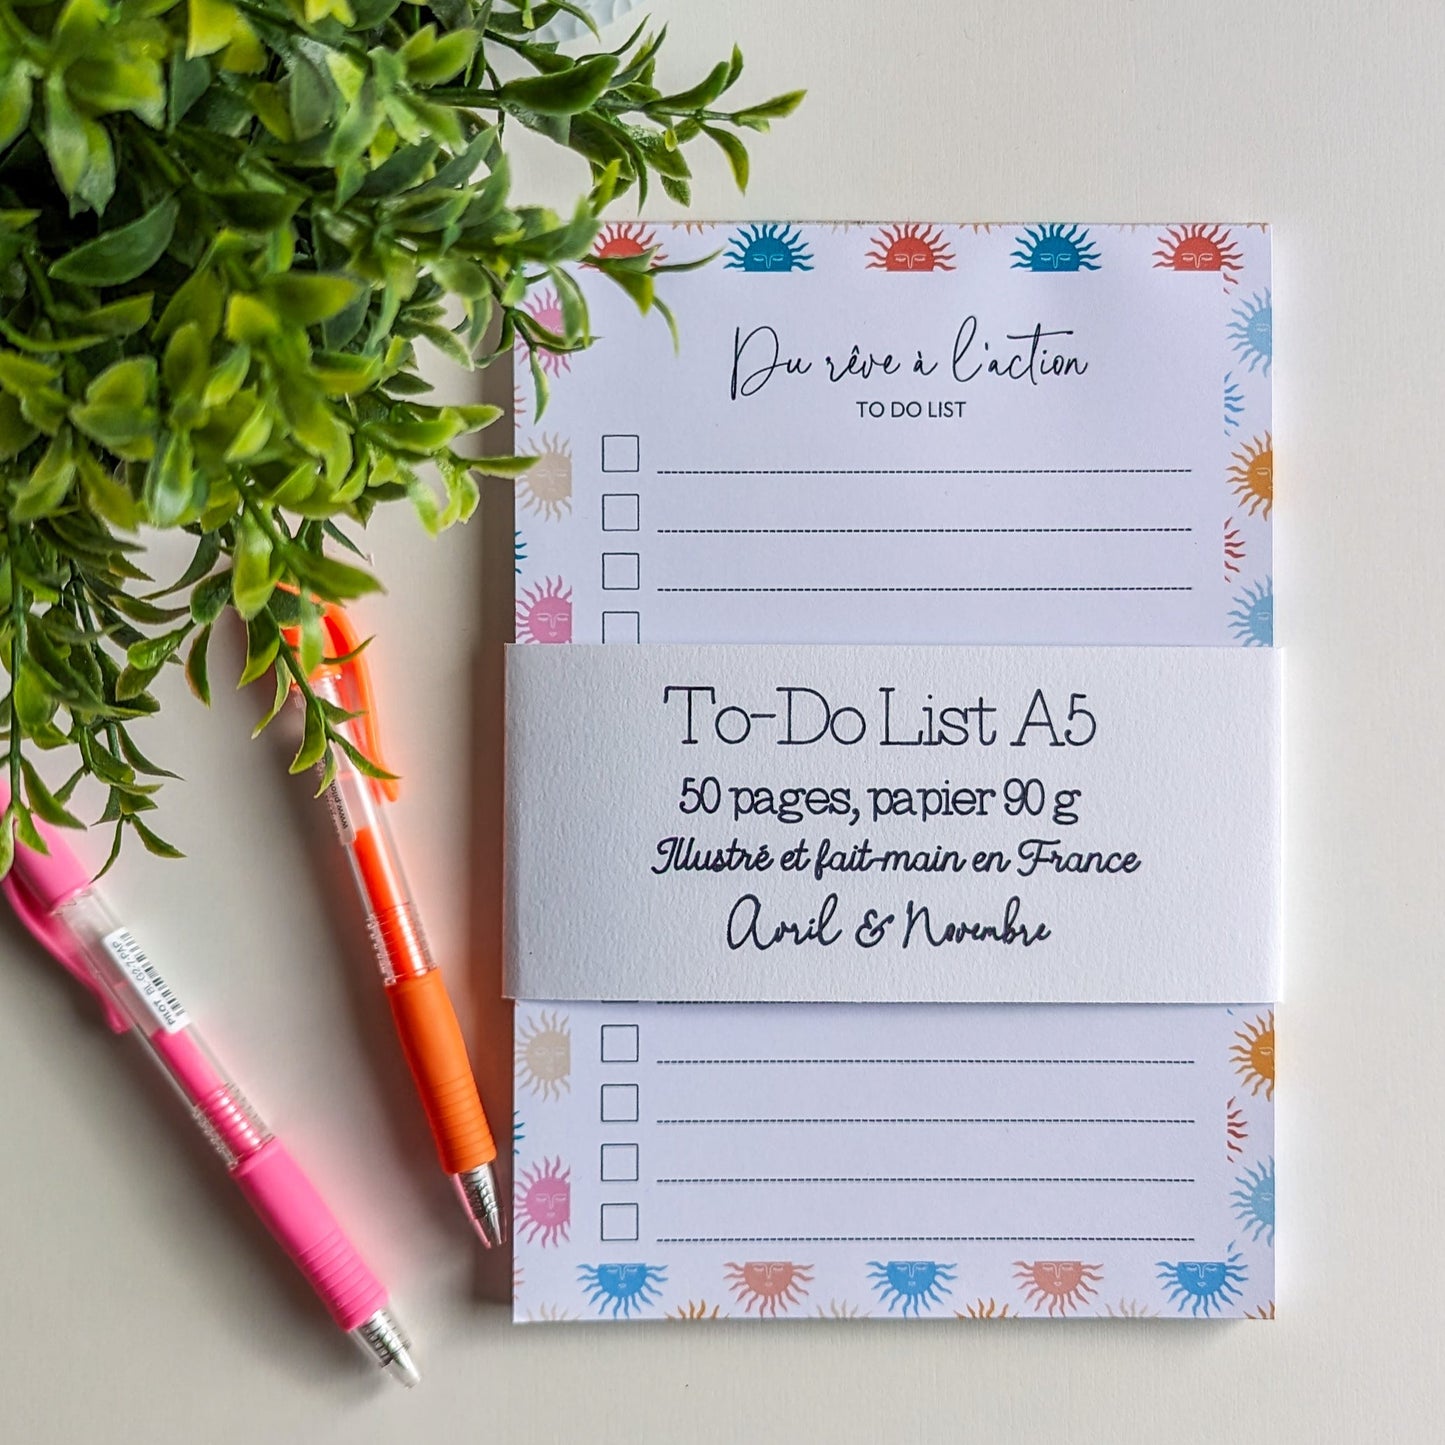 Du rêve à l'action
TO DO LIST
To-Do List A5
50 pages, papier 90 g
Illustré et fait-main en France
Avril & Novembre
PILOT BL-G2-7-FAP